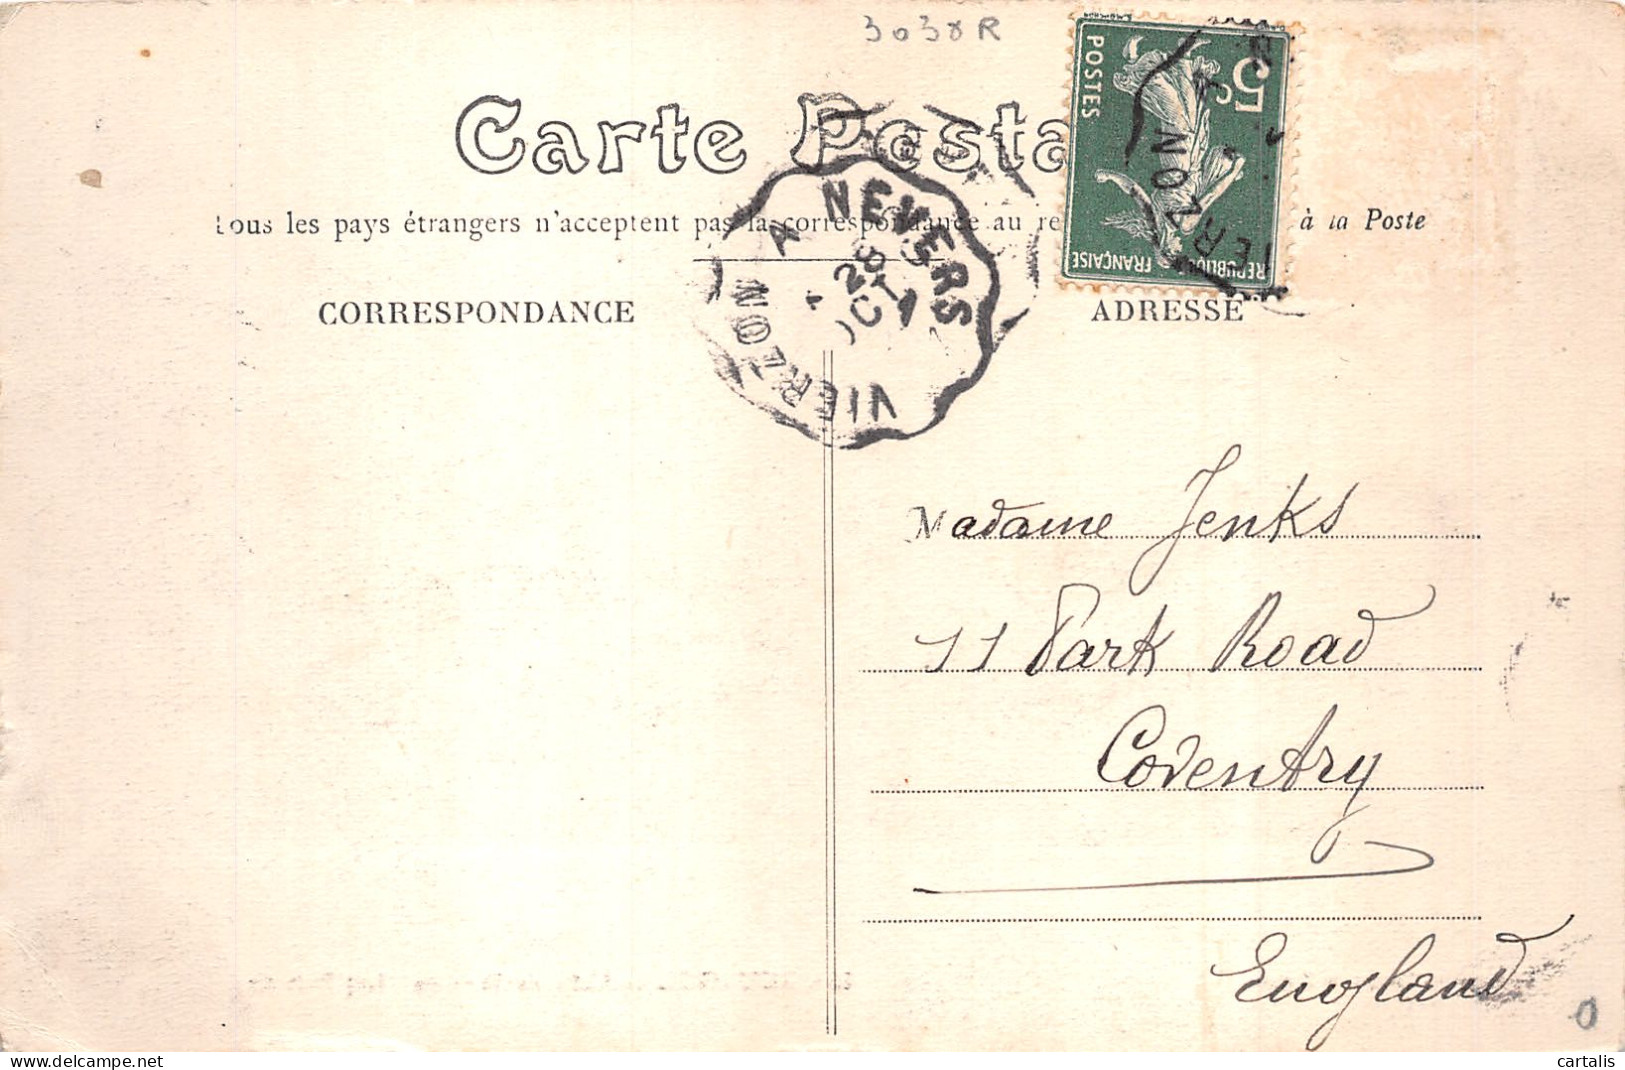 3038R
Carte Posta
Tous les pays étrangers n'acceptent pas la correspondance au re à la Poste
CORRESPONDANCE
ADRESSE
5c
POSTES
REPUBLIQUE FRANÇAISE
VIERZON A NEVERS
28
OCT
Madame Jenks
11 Park Road
Coventry
England
0
cartalis